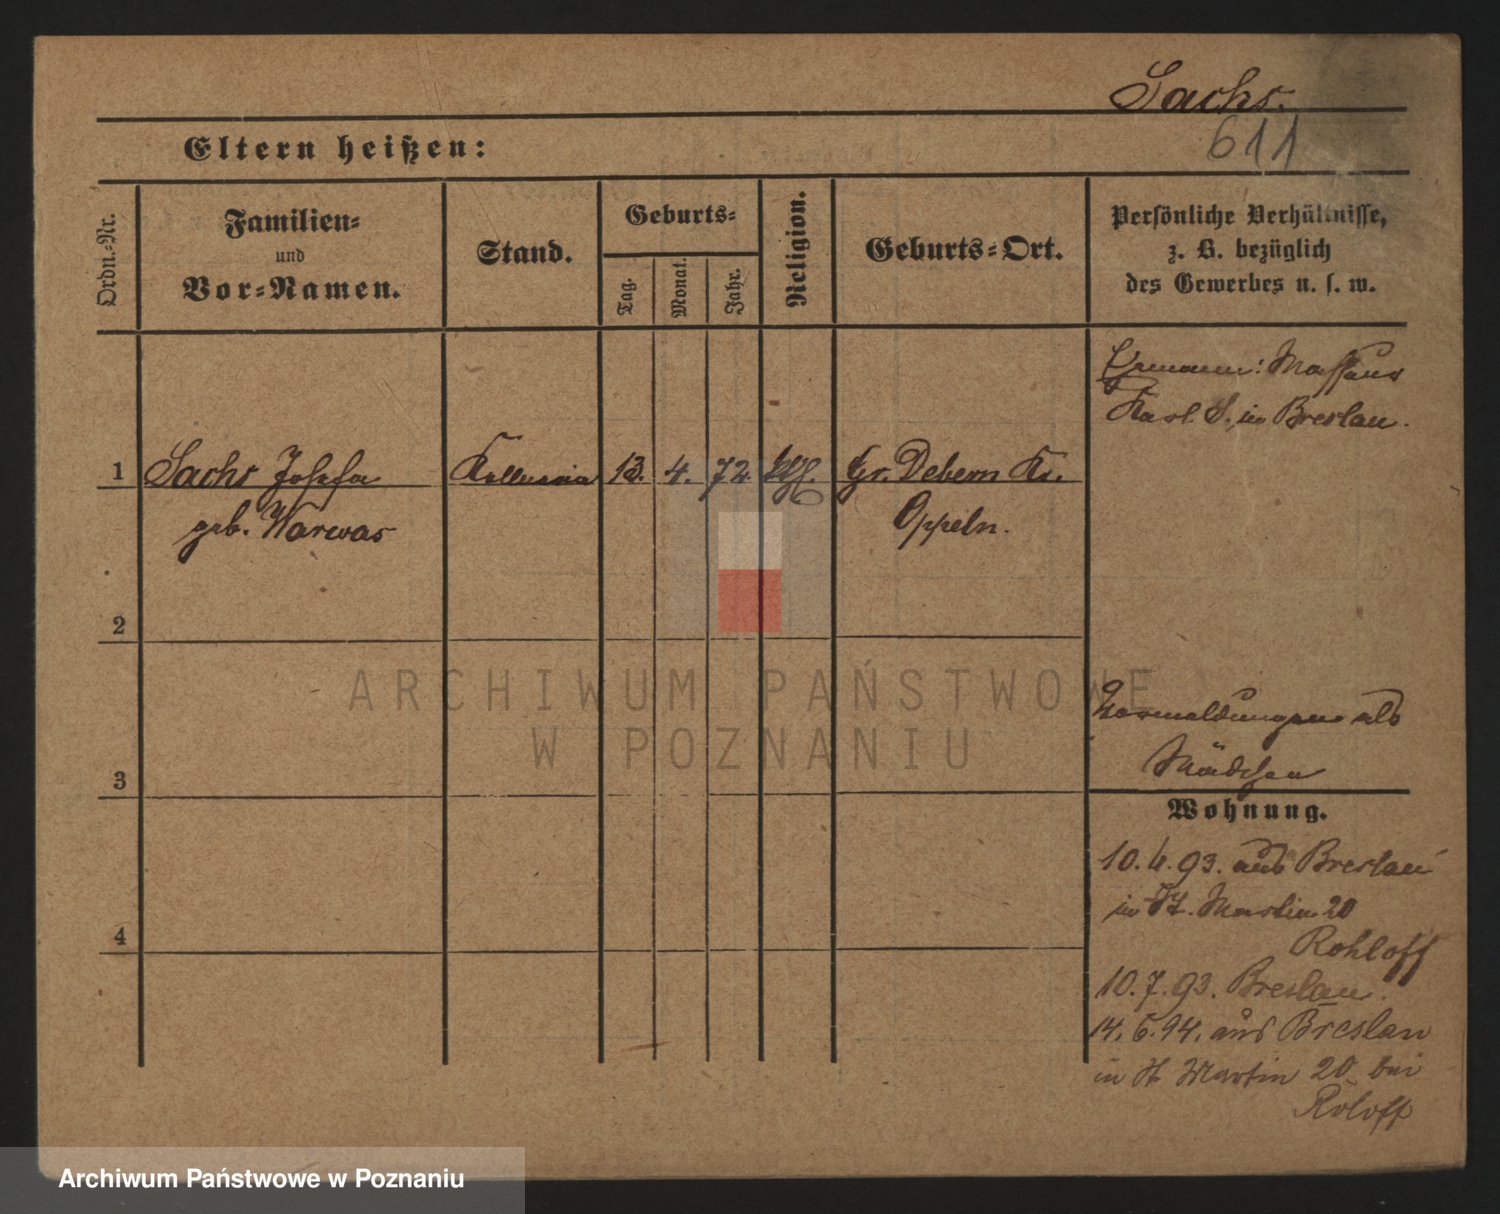 Sachs.
611
Eltern heißen:
Ordn.-Nr.
Familien-
und
Vor-Namen.
Stand.
Geburts-
Tag.
Monat.
Jahr.
Religion.
Geburts-Ort.
Persönliche Verhältnisse,
z. B. bezüglich
des Gewerbes u. s. w.
Ehemann:
Karl S. in Breslau.
1 Sachs Josefa Kellnerin 13. 4. 72 Gr. Debern Kr.
geb. Warwas Oppeln.
2
3
4
ARCHIWUM PAŃSTWOWE
W POZNANIU
Vormeldungen als
Mädchen
Wohnung.
10.4.93. aus Breslau
in St. Martin 20
Rohloff
10.7.93. Breslau.
14.6.94. aus Breslau
in St Martin 20 bei
Roloff
Archiwum Państwowe w Poznaniu